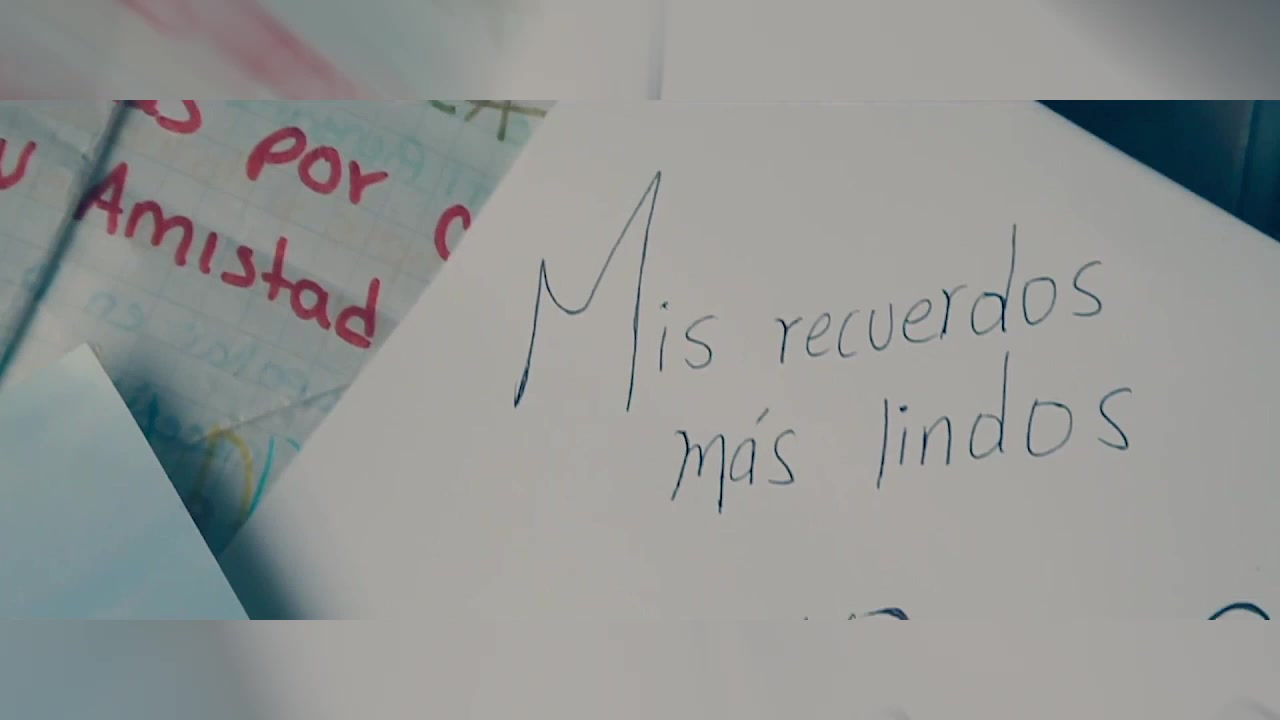 por
Amistad
Mis recuerdos
más lindos